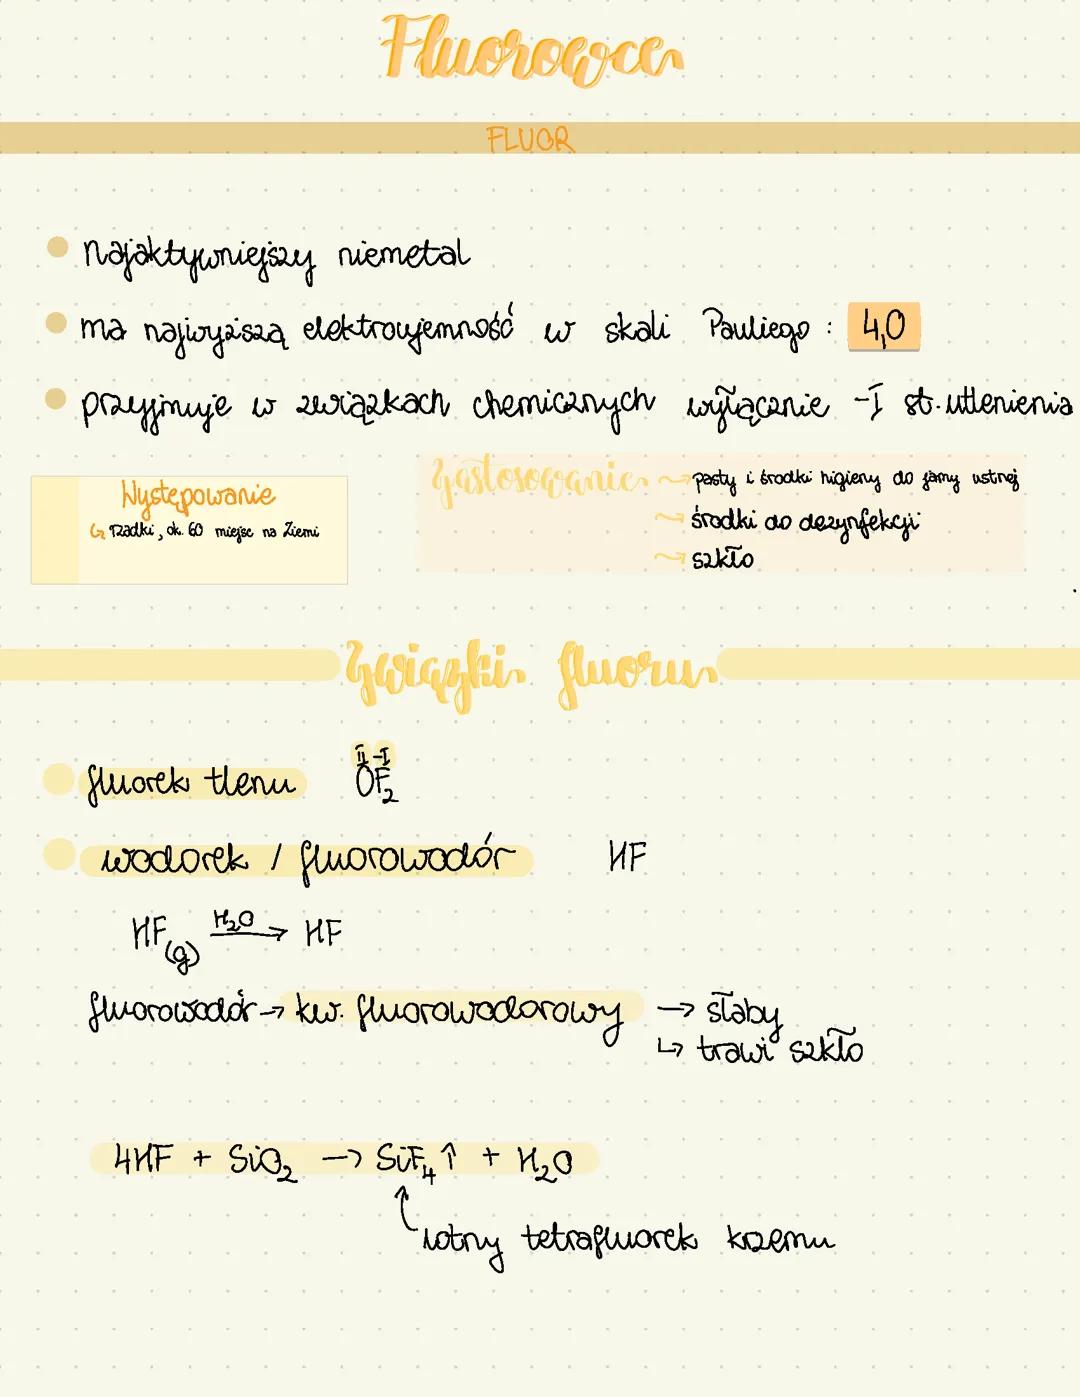 Fluorowce
FLUOR
najaktywniejszy niemetal
ma najwyższą elektroujemność w skali Pauliego : 4,0
przyjmuje w związkach chemicznych wyłącznie -I st. utlenienia
Występowanie
↳ rzadki, ok. 60 miejsc na Ziemi
Zastosowanie → pasty i środki higieny do jamy ustnej
→ środki do dezynfekcji
→ szkło
Związki fluoru
II -I
fluorek tlenu OF₂
wodorek / fluorowodór HF
HF(g) H₂O→ HF
fluorowodór → kw. fluorowodorowy → słaby
↳ trawi szkło
4HF + SiO₂ → SiF₄↑ + H₂O
lotny tetrafluorek krzemu